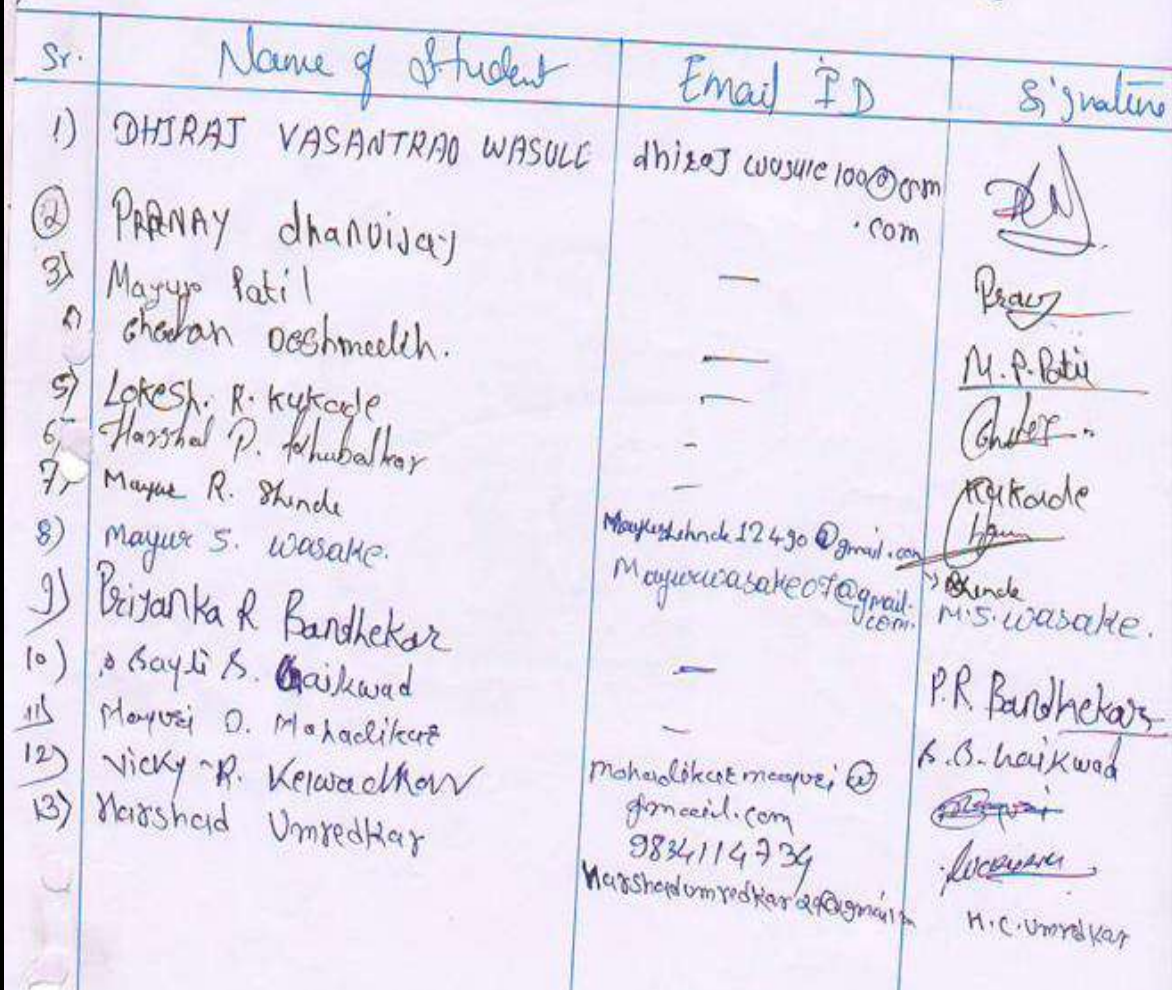 Sr. Name of Student Email ID Signature
1) DHIRAJ VASANTRAO WASULE dhiraj wasule 100@gm
.com
2 PRANAY dhanvijay —
3) Mayur Patil —
Deshmeekh. —
5) Lokesh. R. Kukade -
6 Harshal P. Khubalkar -
7) Mayur R. Shinde 12490@gmail.com Shinde
8) Mayur S. Wasake. Mayurwasake07@gmail.
com. M.S. Wasake.
9) Priyanka R Bandhekar — P.R. Bandhekar
10) Sayli S. Gaikwad -
11) Mayuri D. Mahadikar mahadikarmayuri@
gmail.com
12) Vicky R. 9834114734
13) Harshad Umredkar H.C. Umredkar
M.P. Patil
Kukade